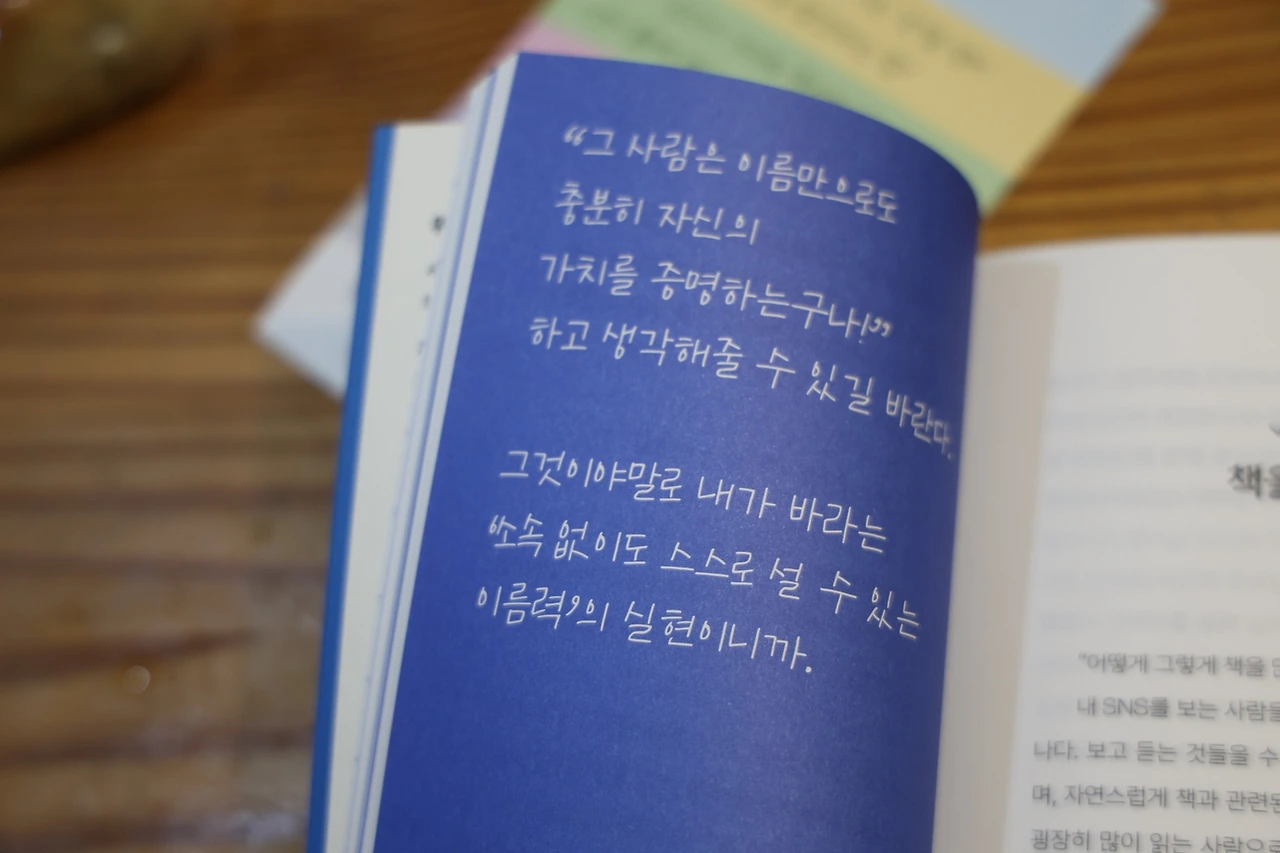 “그 사람은 이름만으로도
충분히 자신의
가치를 증명하는구나!”
하고 생각해줄 수 있길 바란다.
그것이야말로 내가 바라는
‘소속 없이도 스스로 설 수 있는
이름력’의 실현이니까.
책을
“어떻게 그렇게 책을
내 SNS를 보는 사람들
나다. 보고 듣는 것들을 수
며, 자연스럽게 책과 관련된
굉장히 많이 읽는 사람으로